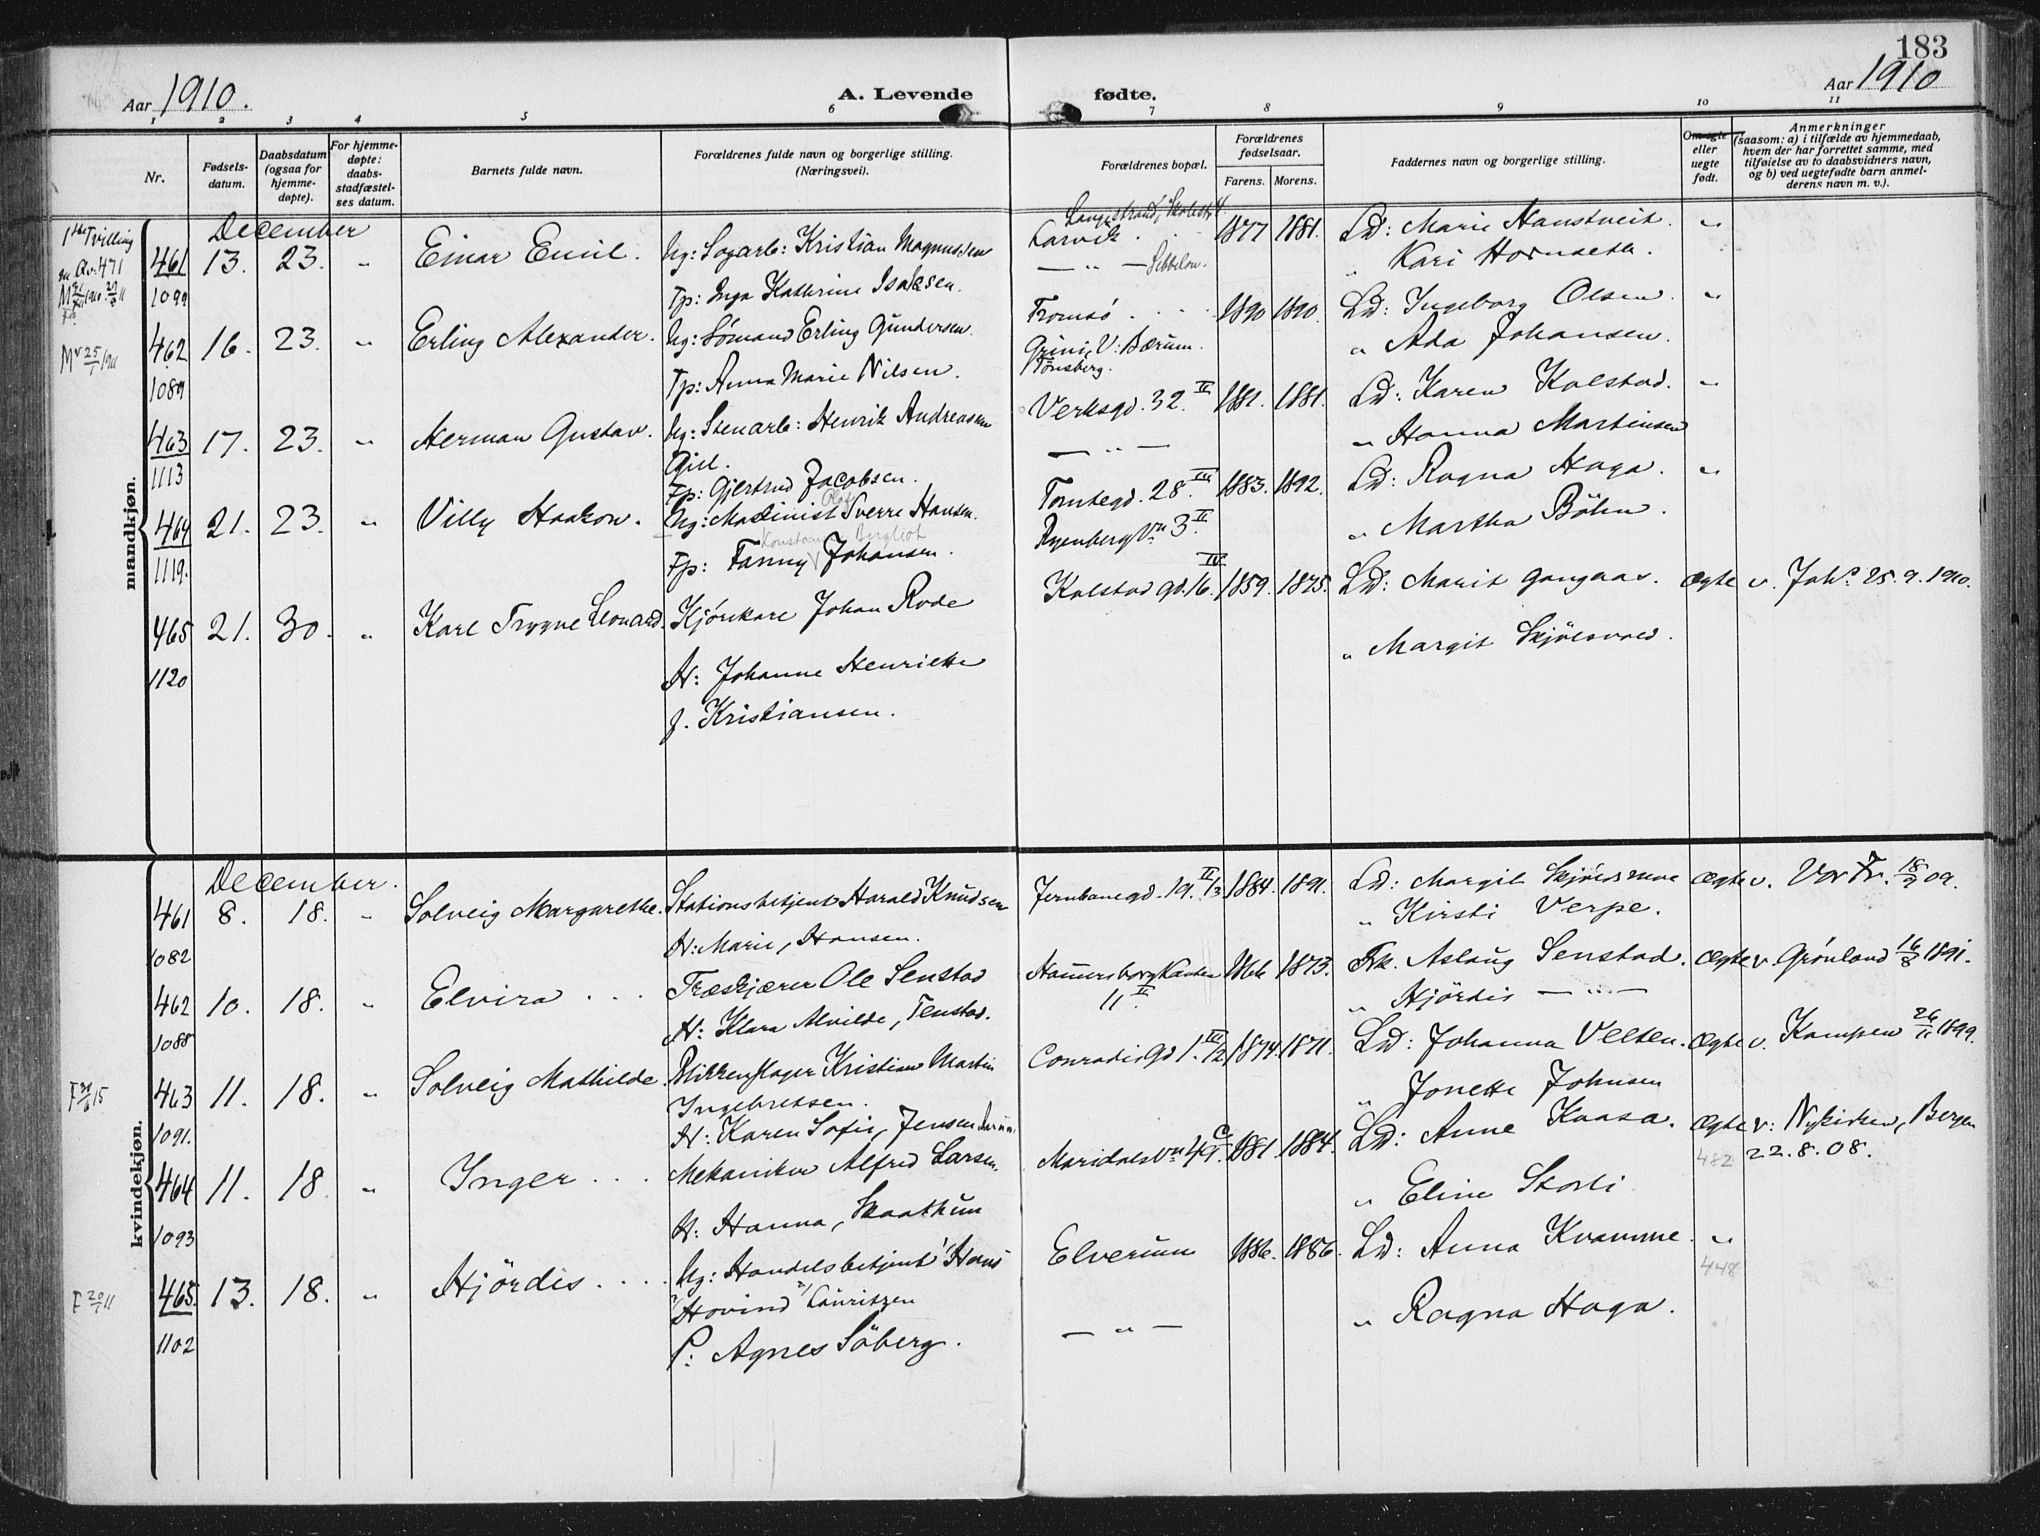 183
Aar 1910.
A. Levende fødte.
Aar 1910
1 2 3 4 5 6 7 8 9 10 11
Nr.
Fødselsdatum.
Daabsdatum (ogsaa for hjemmedøpte).
For hjemmedøpte: daabsstadfæstelses datum.
Barnets fulde navn.
Forældrenes fulde navn og borgerlige stilling. (Næringsvei).
Forældrenes bopæl.
Forældrenes fødselsaar.
Farens. Morens.
Faddernes navn og borgerlige stilling.
Om egte eller uegte født.
Anmerkninger (saasom: a) i tilfælde av hjemmedaab, hvem der har forrettet samme, med tilføielse av to daabsvidners navn, og b) ved uegtefødte barn anmelderens navn m. v.).
mandkjøn.
December
461 13. 23. " Einar Emil. Ug: Sagarb: Kristian Magnussen Larvik 1877 1881. Ld: Marie Haustveit. "
1099 Fp: Inga Kathrine Isaksen. — " — " Kari Hornseth.
462 16. 23. " Erling Alexander. Ug: Sømand Erling Gundersen. Tromsø 1890 1890. Ld: Ingeborg Olsen. "
1089 Fp: Anna Marie Nilsen. Grini, V: Bærum. Tønsberg. " Ada Johansen.
463 17. 23. " Herman Gustav. Ug: Stenarb: Henrik Andreassen Verksgd. 32. II 1881. 1881. Ld: Karen Kolstad. "
1113 Fp: Gjertrud Jacobsen. — " — " Hanna Martinsen
464 21. 23. " Villy Haakon. Ug: Maskinist Sverre Hansen. Tomtegd. 28. III 1883. 1892. Ld: Ragna Haga. "
1119. Fp: Fanny Johansen. Ryenbergvn 3. II " Martha Böhn.
465 21. 30. " Karl Trygve Leonard. Kjørekare Johan Rode Kolstad gd. 16. IV 1859. 1875. Ld: Marit Gangaas. Ægte v. Joh. 25.9.1910.
1120 H: Johanne Henriette " Margit Skjölsvold.
f. Kristiansen.
kvindekjøn.
December.
461 8. 18. " Solveig Margarethe. Stationsbetjent Harald Knudsen Jernbanegd. 19. II/3 1884. 1891. Ld: Margit Ægte v. Vor Fr. 18/7 09.
1082 H: Marie, Hansen. " Kirsti Verpe.
462 10. 18. " Elvira . . . Træskjærer Ole Senstad Hammersborgkanten 11 II 1873. Frk. Aslaug Senstad. Ægte v. Grönland 16/8 1891.
1088 H: Klara Alvilde, Tenstad. " Hjördis — " —
463 11. 18. " Solveig Mathilde. Blikkenslager Kristian Martin Conradisgd 1. III/2 1874. 1871. Ld: Johanna Velten. Ægte v. Kampen 26/11 1899.
1091. Ingebretsen. " Jonette Johnsen
H: Karen Sofie, Jensen
464 11. 18 " Inger . . . Mekaniker Alfred Larsen. Maridalsvn 49. C 1881. 1884. Ld: Anne Kaasa. Ægte v: Nykirken, Bergen
1093 H: Hanna, Skaathun " Eline Storli 482 22.8.08.
F 20/1 11 465. 13. 18. " Hjördis . . . . Ug: Handelsbetjent Hans Elverum 1886. 1886. Ld: Anna Kvamme. "
1102 Hovind Lauritzen — " — " Ragna Haga. 448
P: Agnes Söberg.